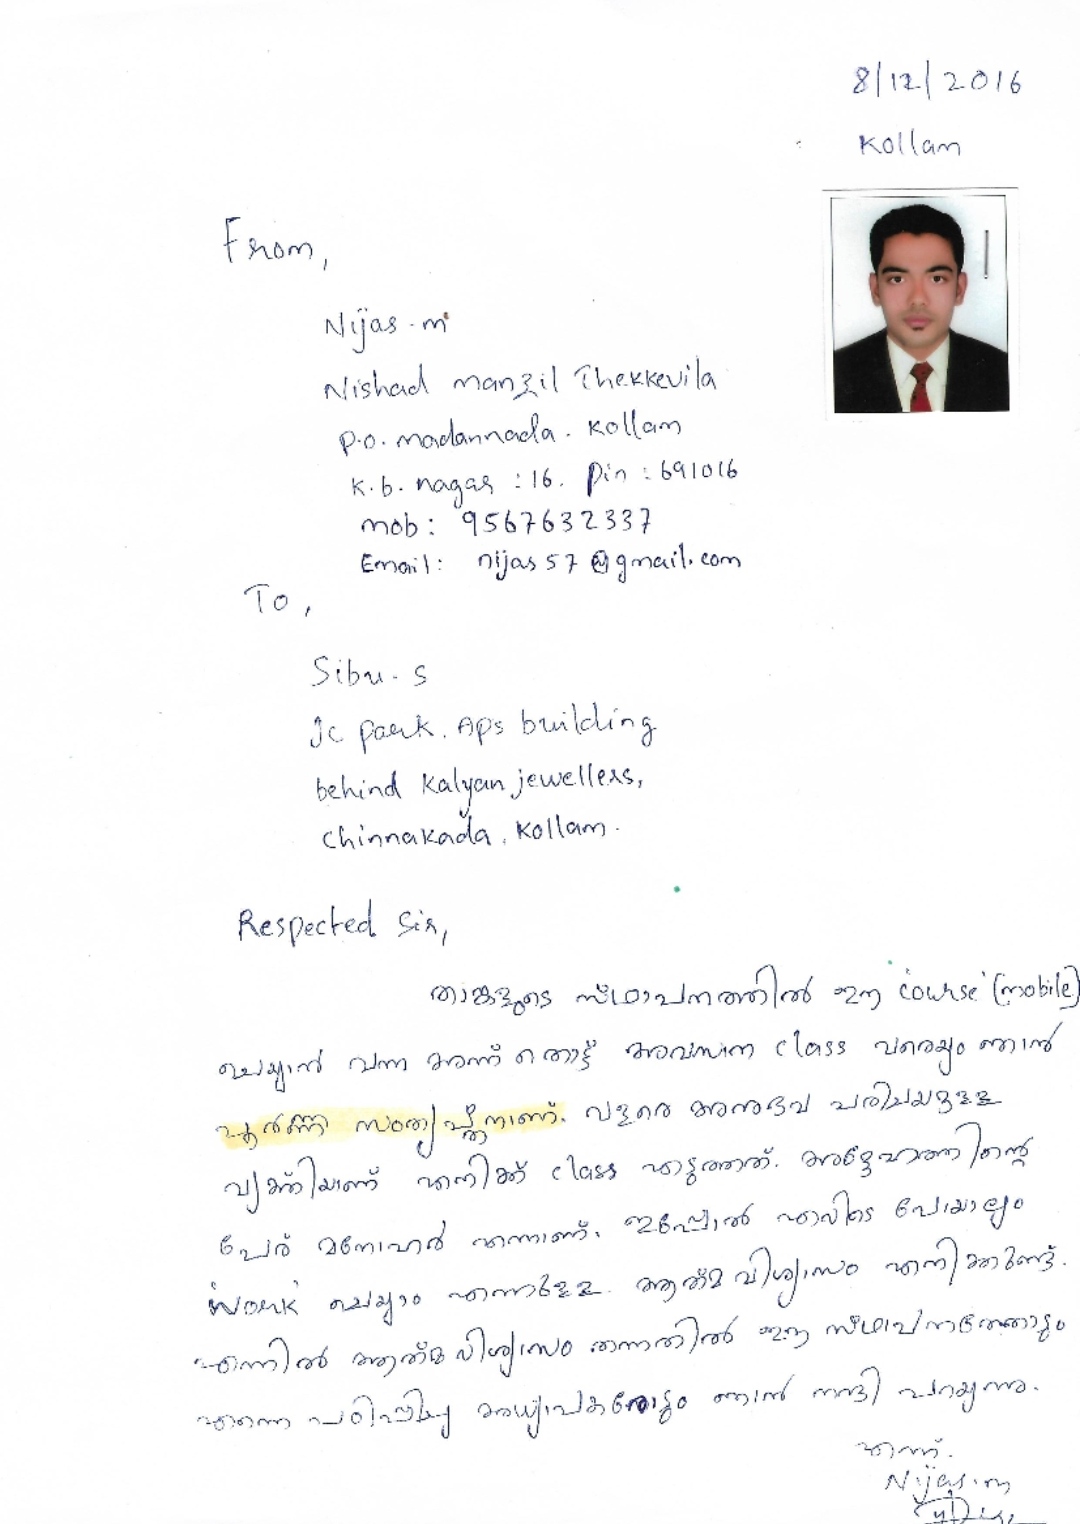 8/12/2016
Kollam
From,
Nijas.m
Nishad manzil Thekkevila
P.o. madannada. Kollam
K.b. nagar : 16. Pin : 691016
mob: 9567632337
Email: nijas57@gmail.com
To,
Sibu.S
Jc park. Aps building
behind Kalyan jewellers,
Chinnakada, Kollam.
Respected Sir,
താങ്കളുടെ സ്ഥാപനത്തിൽ ഈ 'course' (mobile)
ചെയ്യാൻ വന്ന അന്ന് തൊട്ട് അവസാന class വരെയും ഞാൻ
പൂർണ്ണ സംതൃപ്തനാണ്. വളരെ അനുഭവ പരിചയമുള്ള
വ്യക്തിയാണ് എനിക്ക് class എടുത്തത്. അദ്ദേഹത്തിന്റെ
പേര് മനോഹർ എന്നാണ്. ഇപ്പോൽ എവിടെ പോയാലും
work ചെയ്യാം എന്നുള്ള ആത്മവിശ്വാസം എനിക്കുണ്ട്.
എന്നിൽ ആത്മവിശ്വാസം തന്നതിൽ ഈ സ്ഥാപനത്തോടും
എന്നെ പഠിപ്പിച്ച അധ്യാപകരോടും ഞാൻ നന്ദി പറയുന്നു.
എന്ന്.
Nijas.m